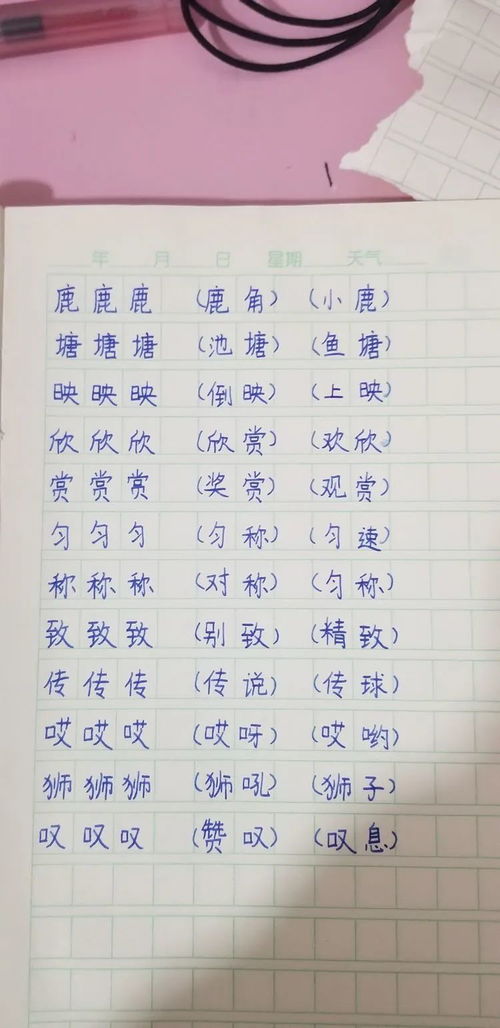 年 月 日 星期 天气
鹿 鹿 鹿 (鹿 角) (小 鹿)
塘 塘 塘 (池 塘) (鱼 塘)
映 映 映 (倒 映) (上 映)
欣 欣 欣 (欣 赏) (欢 欣)
赏 赏 赏 (奖 赏) (观 赏)
匀 匀 匀 (匀 称) (匀 速)
称 称 称 (对 称) (匀 称)
致 致 致 (别 致) (精 致)
传 传 传 (传 说) (传 球)
哎 哎 哎 (哎 呀) (哎 哟)
狮 狮 狮 (狮 吼) (狮 子)
叹 叹 叹 (赞 叹) (叹 息)